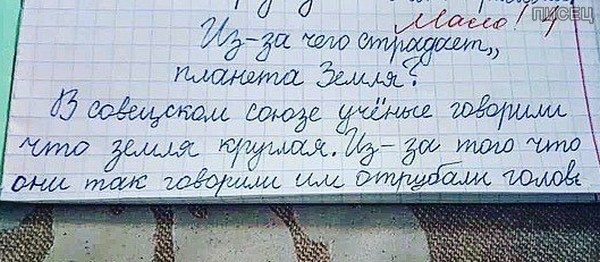 ПИСЕЦ
Мало! 4
Из-за чего страдает,,
планета Земля?
В совецском союзе учёные говорили
что земля круглая. Из-за того что
они так говорили им отрубали головы